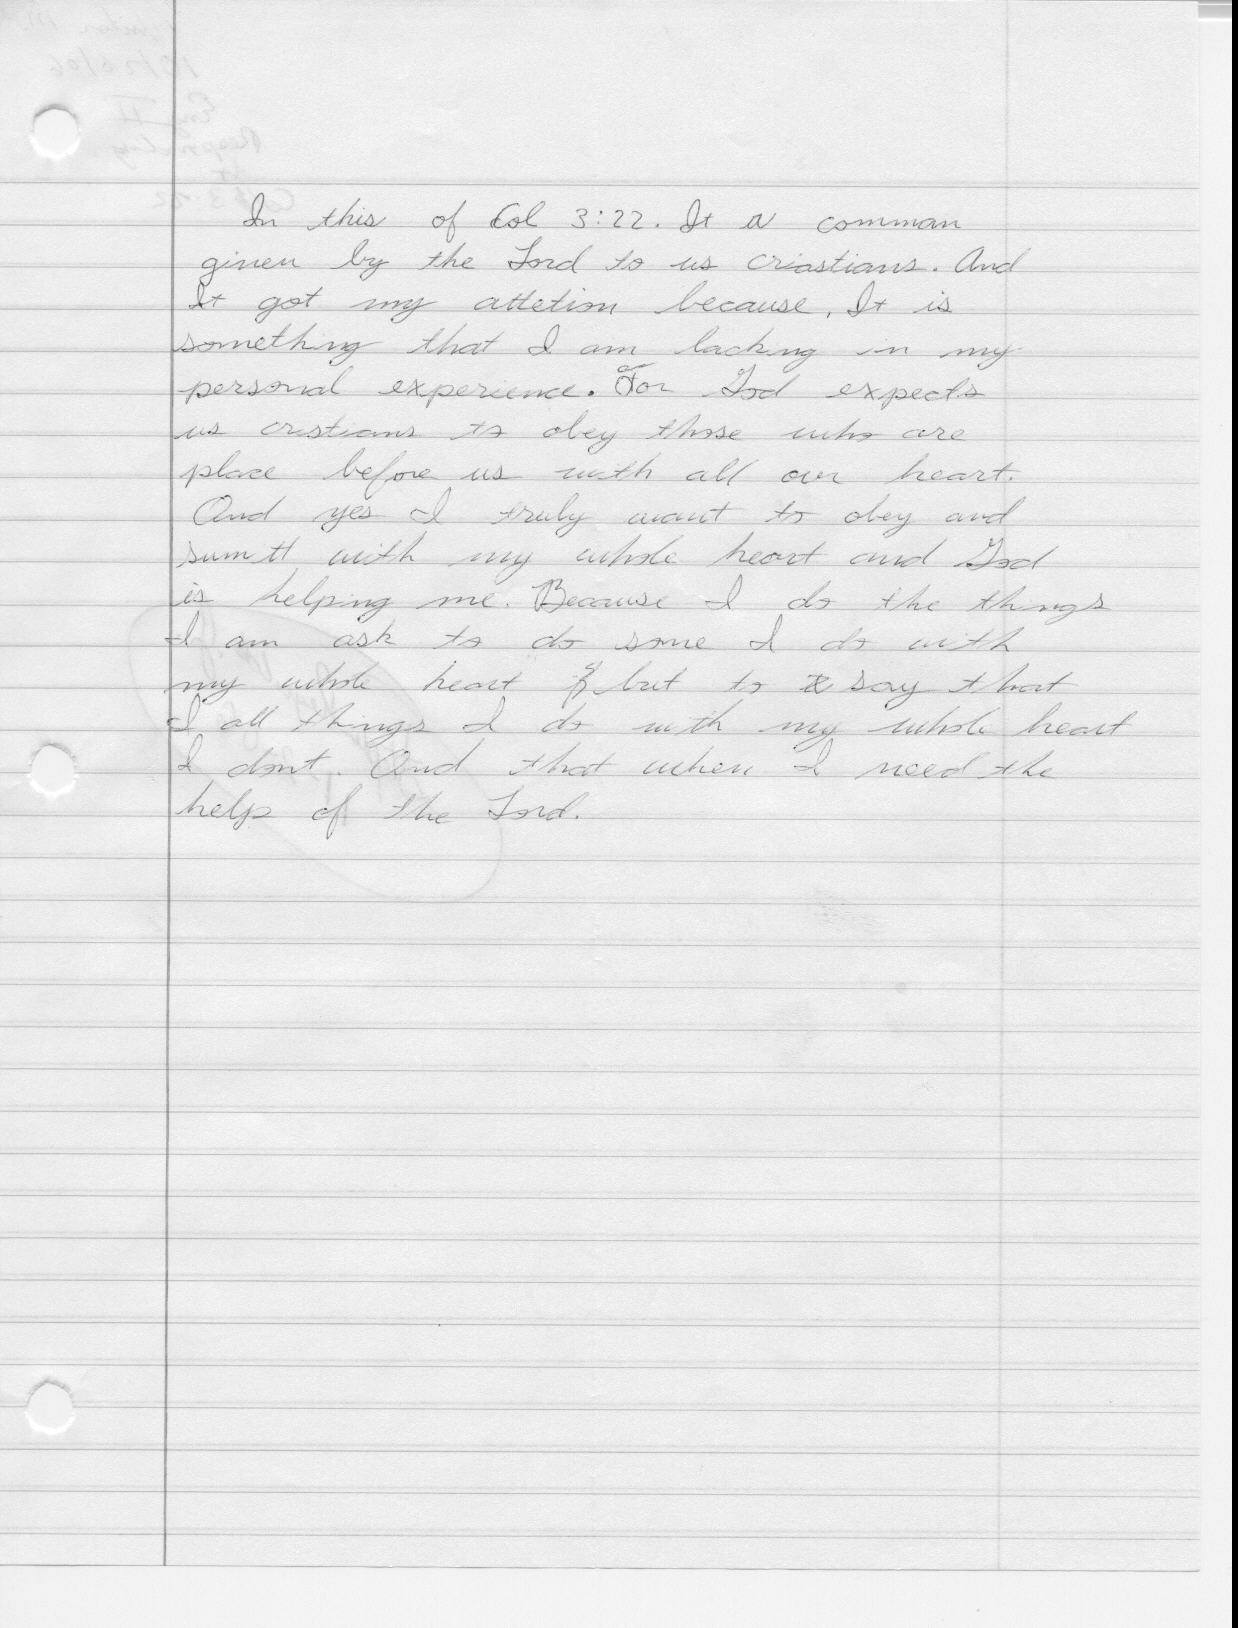 In this of Col 3:22. It a comman
given by the Lord to us criastians. And
It got my attetion because, It is
something that I am lacking in my
personal experience. For God expects
us cristians to obey those who are
place before us with all our heart.
And yes I truly want to obey and
sumtt with my whole heart and God
is helping me. Because I do the things
I am ask to do some I do with
my whole heart but to say that
I all things I do with my whole heart
I dont. And that when I need the
help of the Lord.